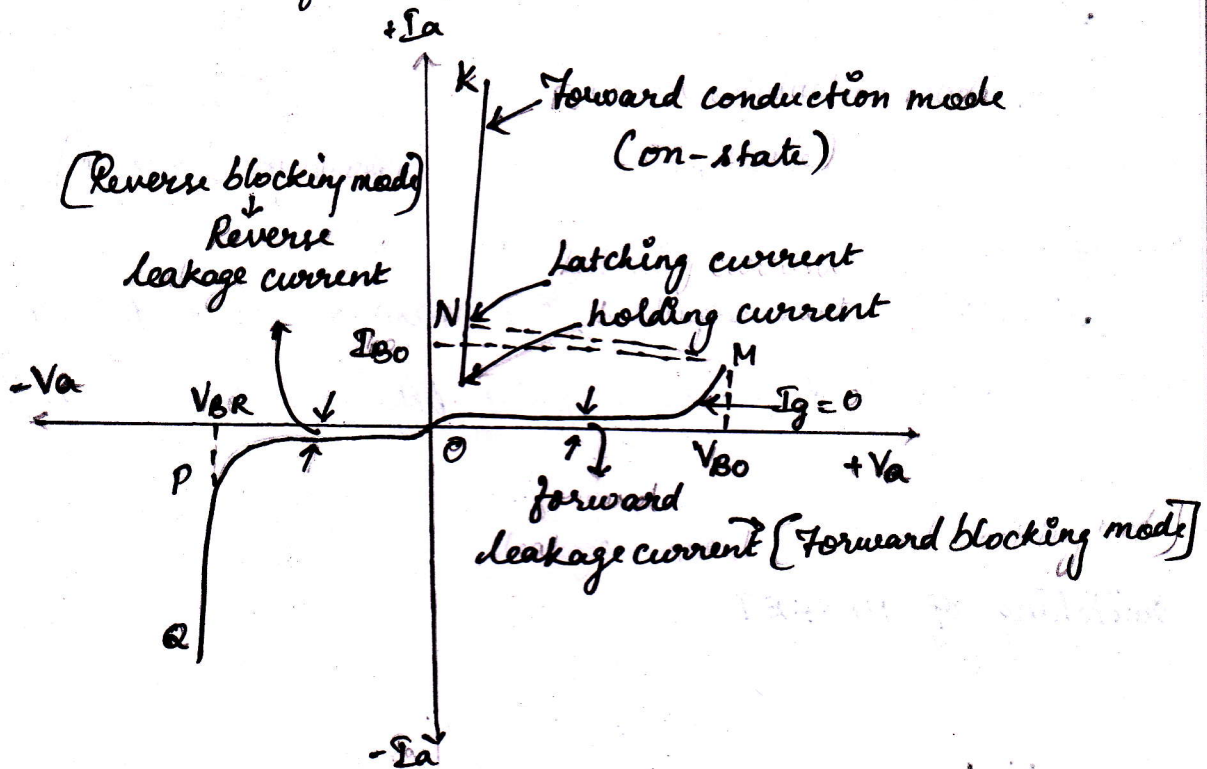 +Ia
K
Forward conduction mode
(on-state)
[Reverse blocking mode]
Reverse
leakage current
Latching current
N
holding current
IBO
M
-Va
VBR
Ig = 0
O
VBO
+Va
P
forward
leakage current [Forward blocking mode]
Q
-Ia